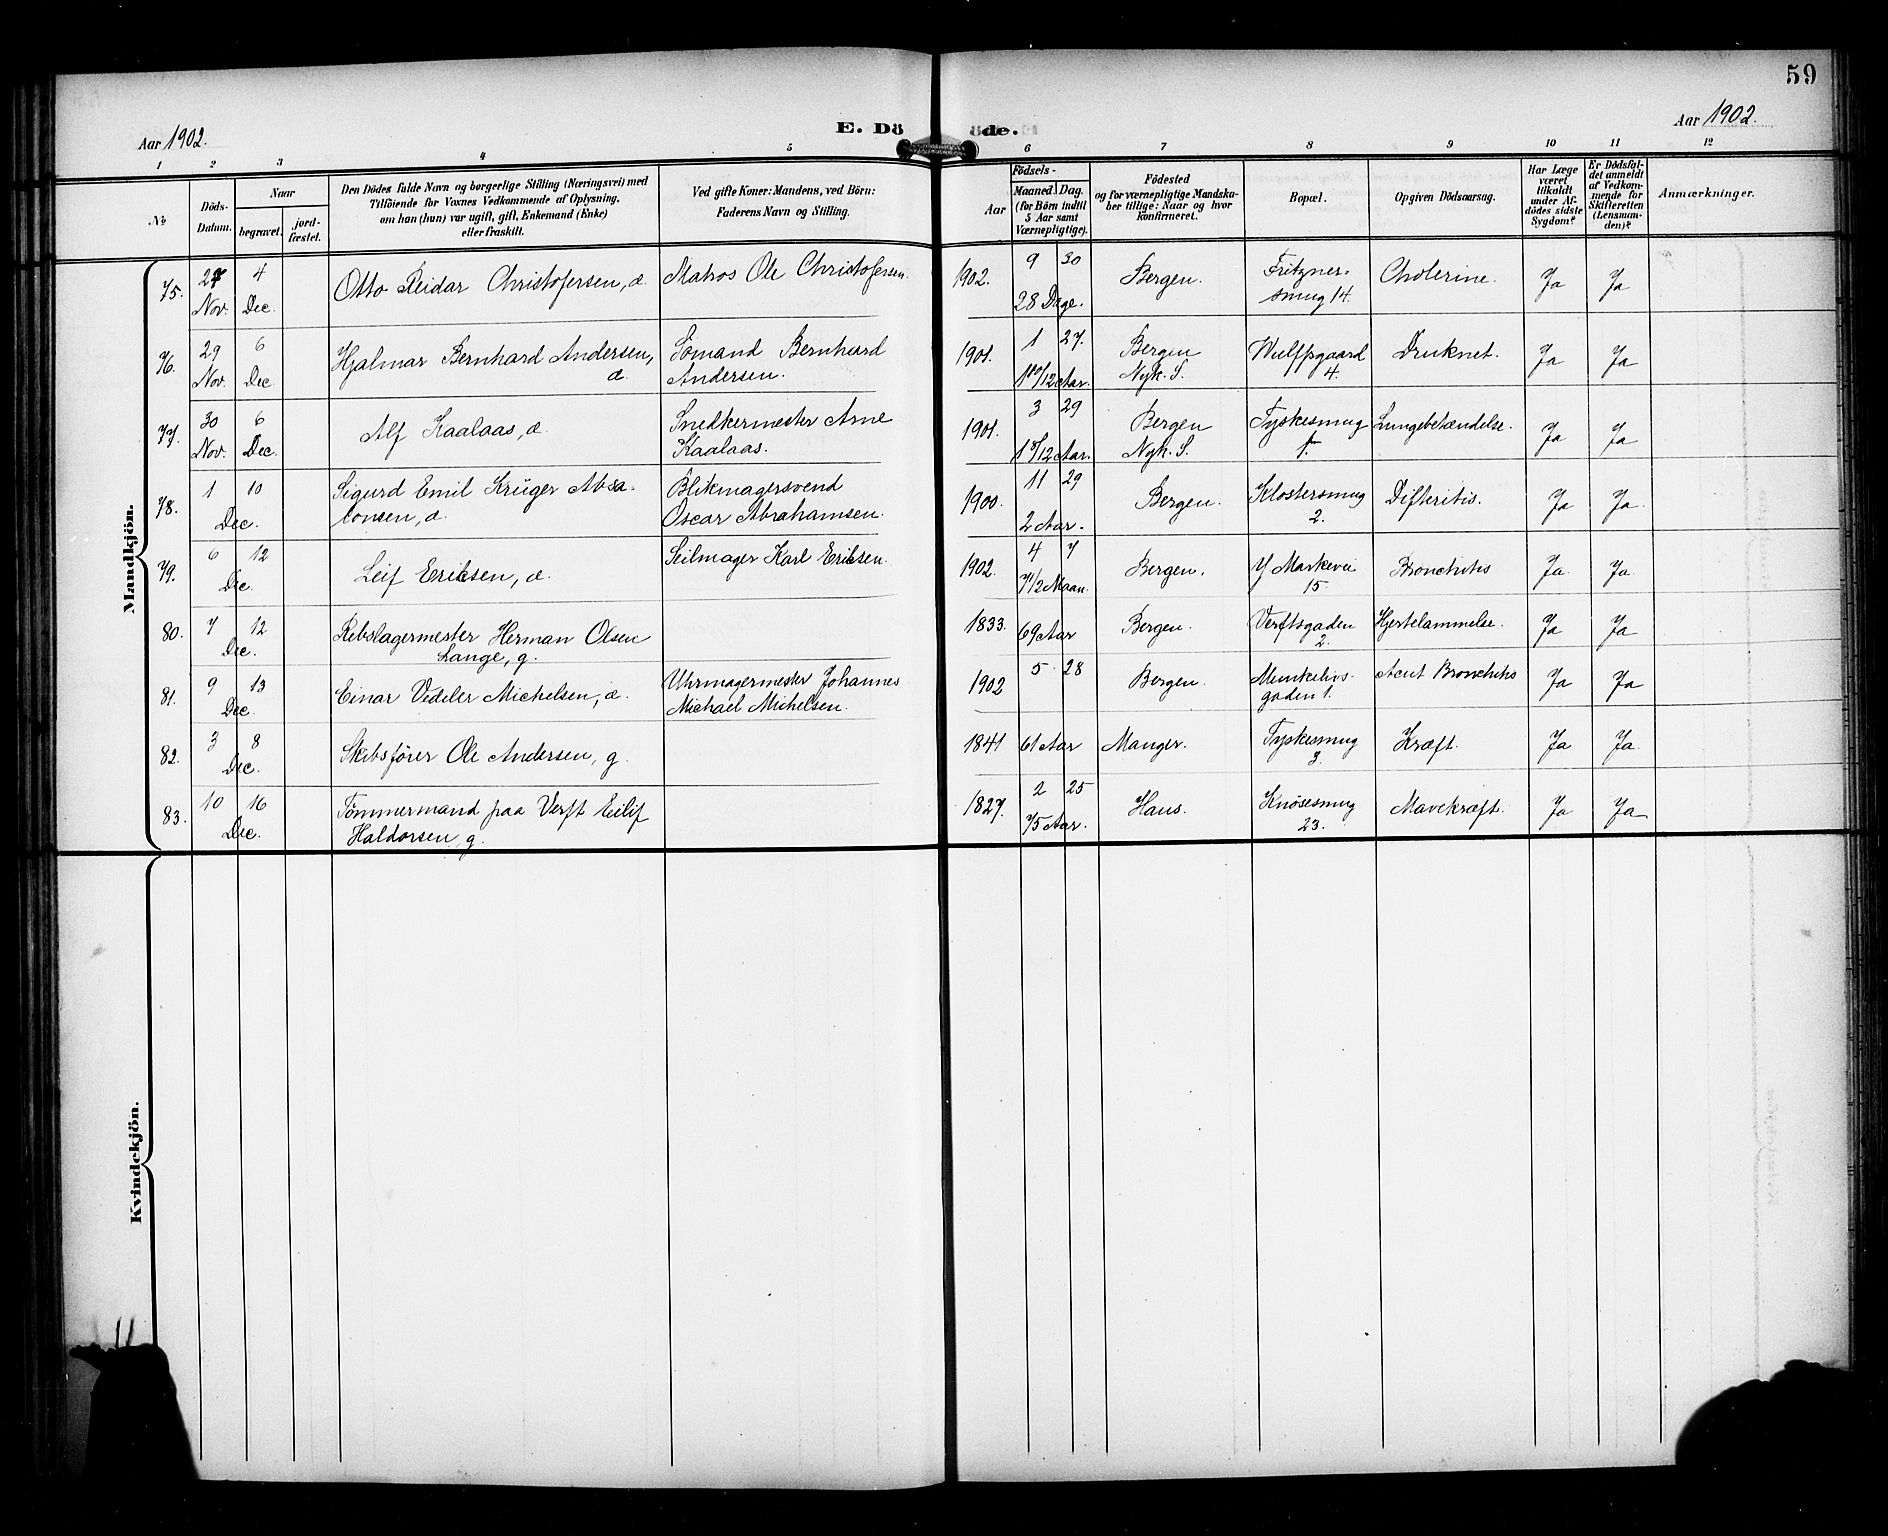 59
Aar 1902.
E. Döde.
Aar 1902.
1 2 3 4 5 6 7 8 9 10 11 12
№
Döds-Datum.
Naar
begravet.
jord-fæstet.
Den Dödes fulde Navn og borgerlige Stilling (Næringsvei) med
Tilföiende for Voxnes Vedkommende af Oplysning,
om han (hun) var ugift, gift, Enkemand (Enke)
eller fraskilt.
Ved gifte Koner: Mandens, ved Börn:
Faderens Navn og Stilling.
Födsels-
Aar
Maaned Dag.
(for Börn indtil
5 Aar samt
Værnepligtige).
Födested
og for værnepligtige Mandska-
ber tillige: Naar og hvor
konfirmeret.
Bopæl.
Opgiven Dödsaarsag.
Har Læge
været
tilkaldt
under Af-
dödes sidste
Sygdom?
Er Dödsfal-
det anmeldt
af Vedkom-
mende for
Skifteretten
(Lensman-
den)?
Anmærkninger.
Mandkjön.
75. 27 Nov. 4 Dec. Otto Reidar Christofersen, d. Matros Ole Christofersen. 1902. 9 30 28 Dage. Bergen. Fritzners-
smug 14. Cholerine. Ja Ja
76. 29 Nov. 6 Dec Hjalmar Bernhard Andersen,
d. Sömand Bernhard
Andersen. 1901. 1 27. 1 10/12 Aar. Bergen
Nyk. S. Wulffsgaard
4. Druknet. Ja Ja
77. 30 Nov. 6 Dec. Alf Kaalaas, d. Snedkermester Arne
Kaalaas. 1901. 3 29 1 8/12 Aar. Bergen
Nyk. S. Tyskesmug
1. Lungebetændelse. Ja Ja
78. 1 10 Dec. Sigurd Emil Krüger Absa-
lonsen, d. Blikmagersvend
Oscar Abrahamsen. 1900. 11 29 2 Aar. Bergen. Klostersmug
2. Difteritis. Ja Ja
79. 6 12 Dec. Leif Ericsen, d. Seilmager Karl Ericsen. 1902. 4 7 7 1/2 Maan. Bergen. Y Markevei
15 Bronchitis Ja. Ja.
80. 7 12 Dec. Rebslagermester Herman Olsen
Lange, g. 1833. 69 Aar Bergen. Verftsgaden
2. Hjertelammelse. Ja Ja
81. 9 13 Dec. Einar Videler Michelsen, d. Uhrmagermester Johannes
Michael Michelsen. 1902 5 28 Bergen. Munkelivs-
gaden 1. Acut Bronchitis Ja Ja
82. 3 8 Dec. Skibsförer Ole Andersen, g. 1841 61 Aar Manger. Tyskesmug
3. Kræft. Ja Ja.
83. 10 16 Dec. Tömmermand paa Verft Eilif
Haldorsen, g. 1827. 2 25 75 Aar. Haus. Knösesmug
23. Mavekræft. Ja Ja
Kvindekjön.